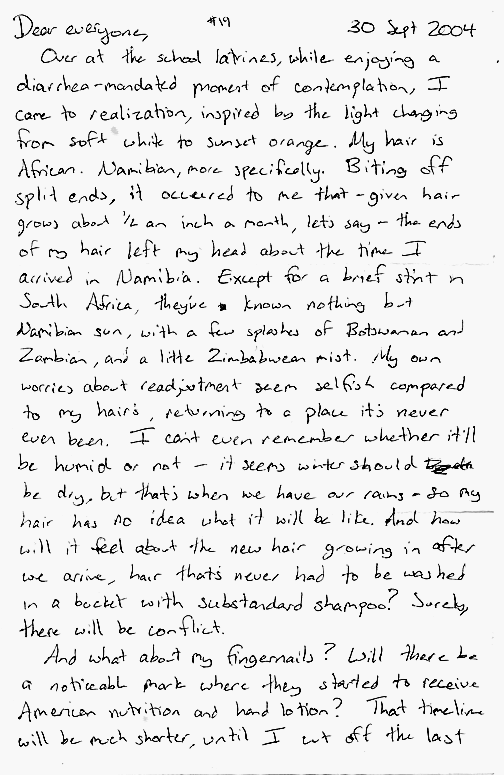 #19
Dear everyone, 30 Sept 2004
Over at the school latrines, while enjoying a
diarrhea-mandated moment of contemplation, I
came to realization, inspired by the light changing
from soft white to sunset orange. My hair is
African. Namibian, more specifically. Biting off
split ends, it occurred to me that - given hair
grows about ½ an inch a month, let's say - the ends
of my hair left my head about the time I
arrived in Namibia. Except for a brief stint in
South Africa, they've known nothing but
Namibian sun, with a few splashes of Botswanan and
Zambian, and a little Zimbabwean mist. My own
worries about readjustment seem selfish compared
to my hair's, returning to a place it's never
even been. I can't even remember whether it'll
be humid or not - it seems winter should
be dry, but that's when we have our rains - so my
hair has no idea what it will be like. And how
will it feel about the new hair growing in after
we arrive, hair that's never had to be washed
in a bucket with substandard shampoo? Surely,
there will be conflict.
And what about my fingernails? Will there be
a noticeable mark where they started to receive
American nutrition and hand lotion? That timeline
will be much shorter, until I cut off the last